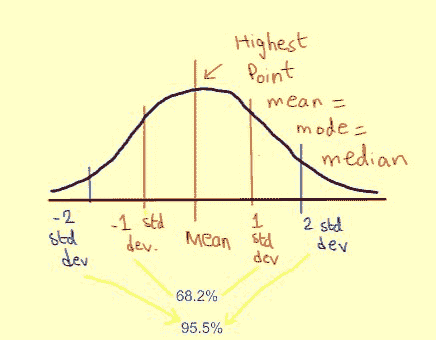 Highest
Point
mean =
mode =
median
-2
std
dev
-1 std
dev.
Mean
1
std
dev
2 std
dev
68.2%
95.5%